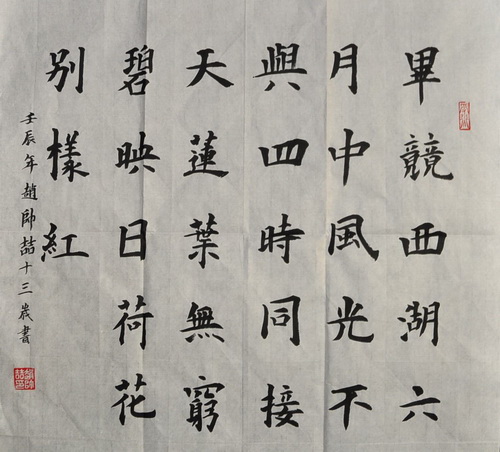 畢競西湖六
月中風光不
與四時同接
天蓮葉無窮
碧映日荷花
別樣紅
壬辰年趙帥喆十三歲書